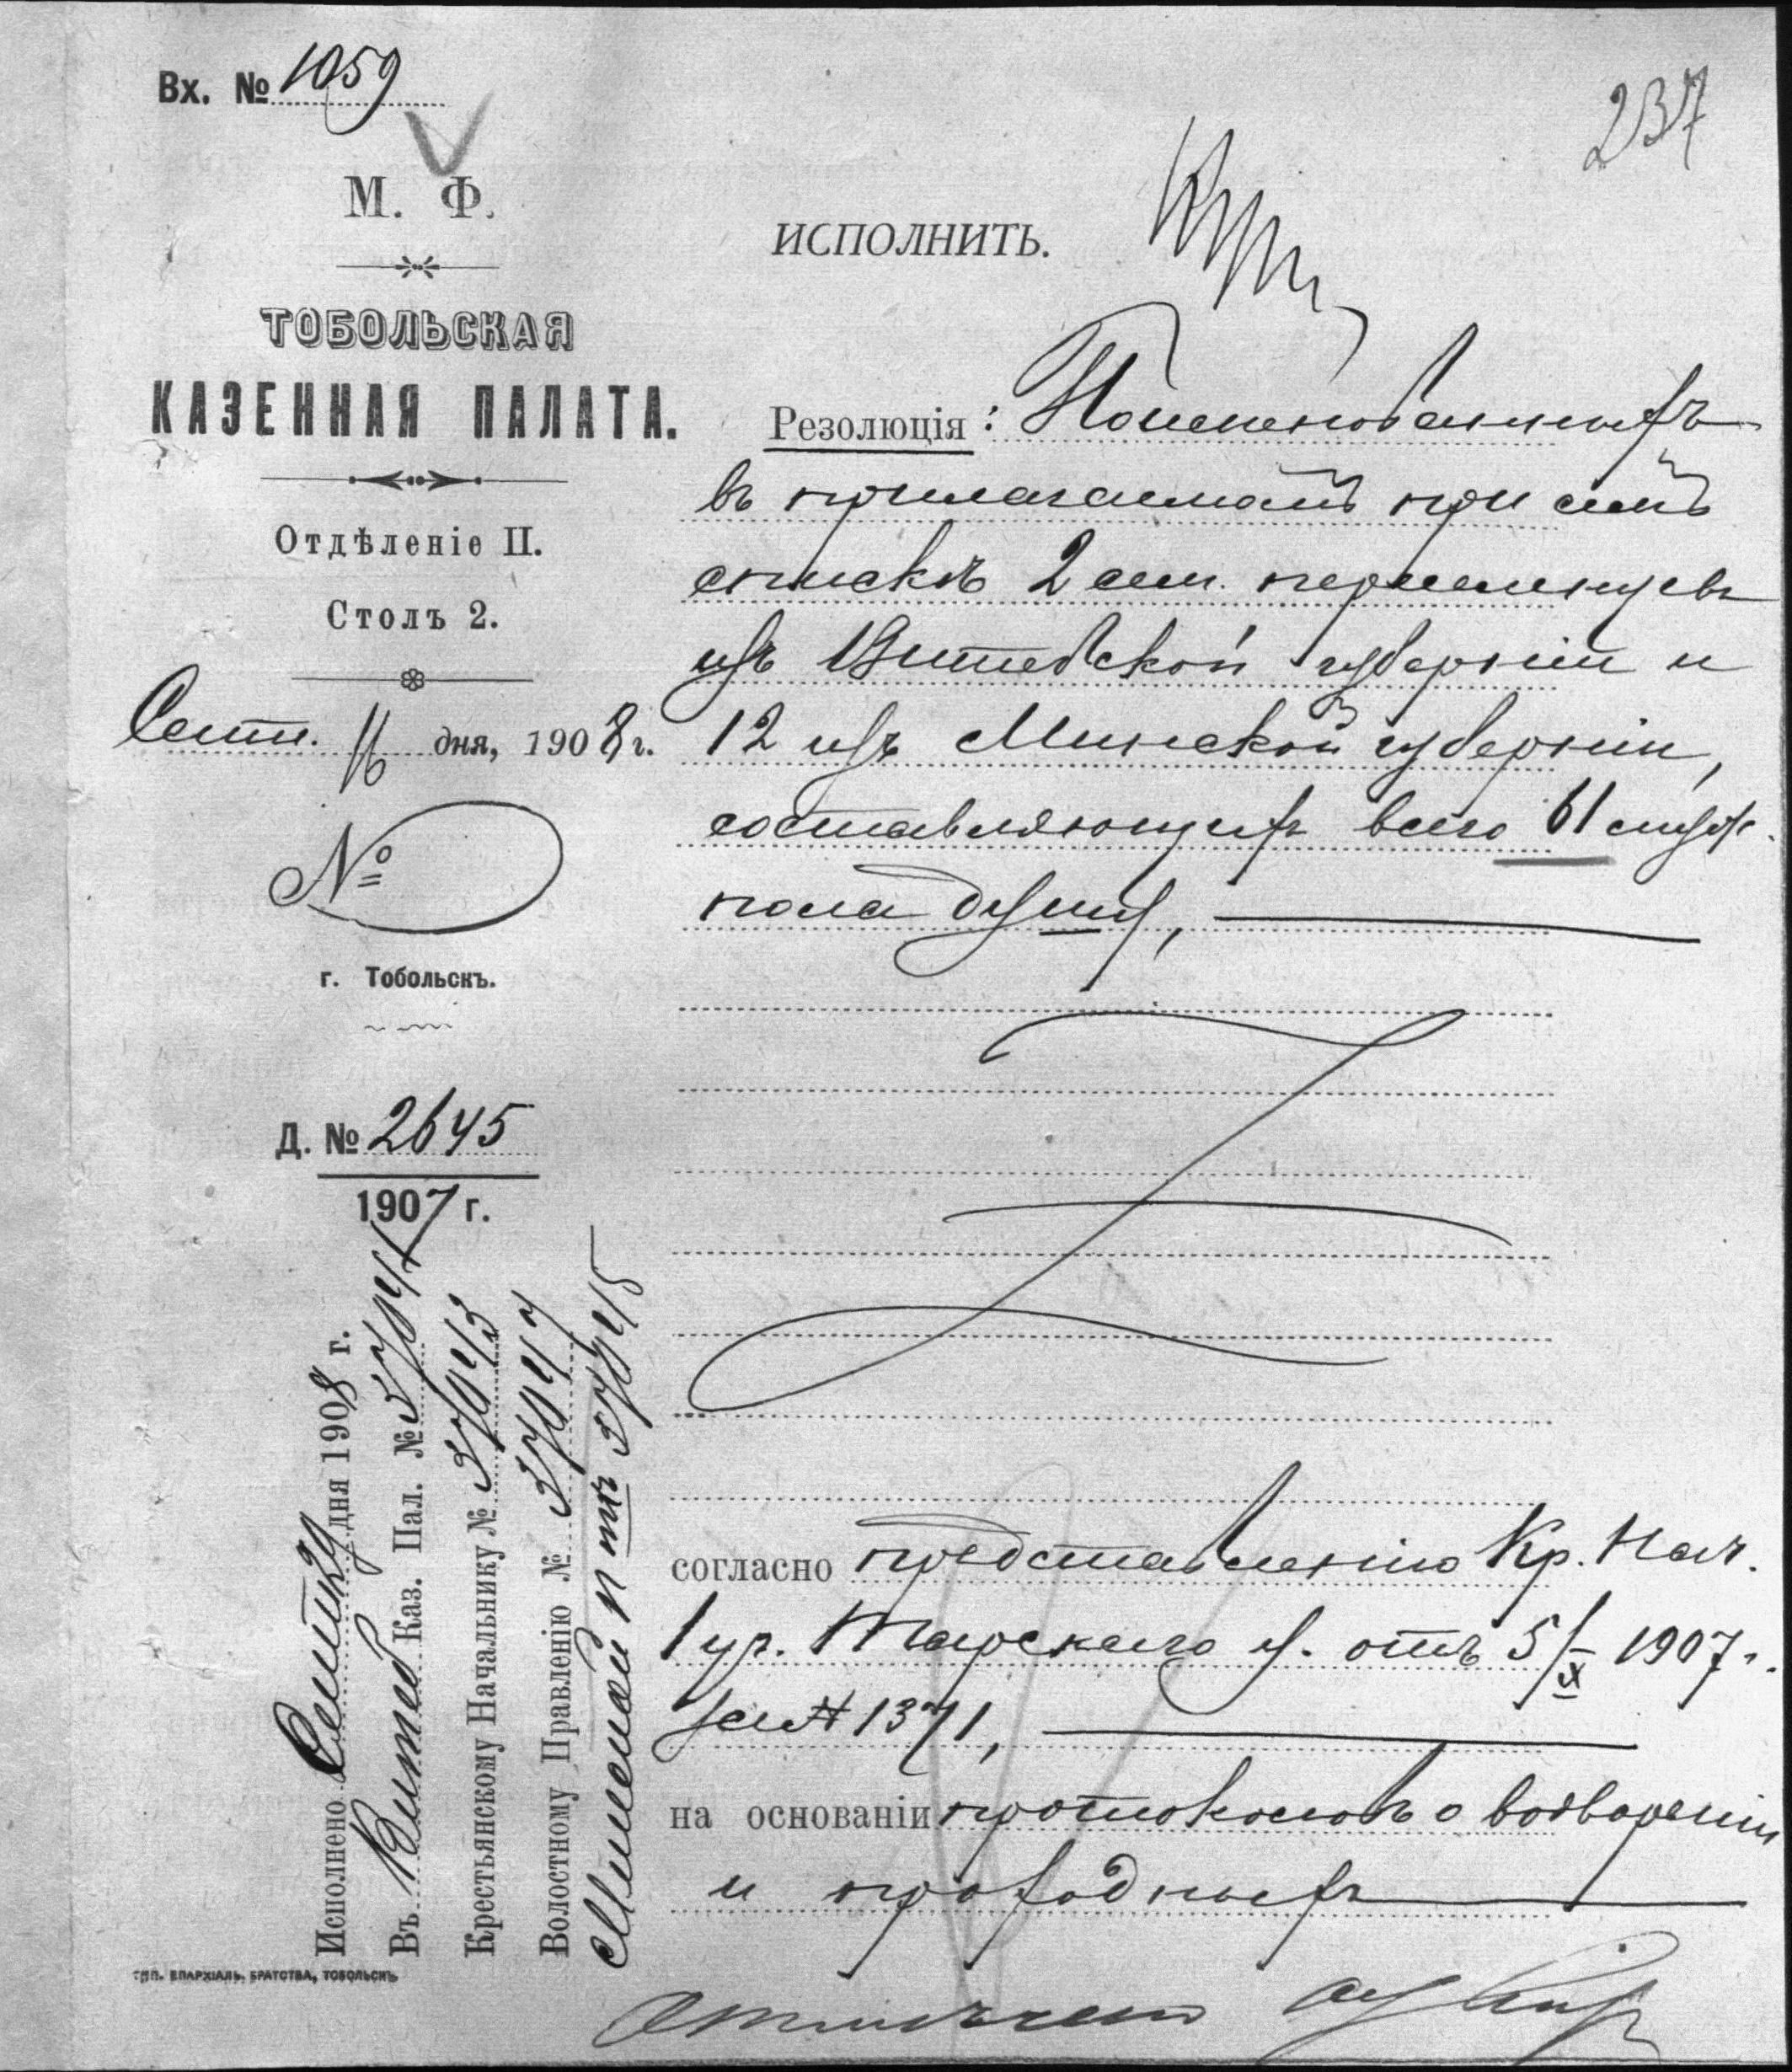 Вх. № 1059
237
М. Ф.
ТОБОЛЬСКАЯ
КАЗЕННАЯ ПАЛАТА.
Отдѣленіе II.
Столъ 2.
Сент. 16 дня, 1908 г.
№
г. Тобольскъ.
Д. № 2645
1907 г.
Исполнено Сент. дня 1908 г.
Въ Витеб Каз. Пал. № 37044
Крестьянскому Начальнику № 37043
Волостному Правленію № 37047
Минской 37045
ТИП. ЕПАРХІАЛЬ. БРАТСТВА, ТОБОЛЬСКЪ
ИСПОЛНИТЬ.
Резолюція: Поименованныхъ
въ прилагаемомъ при семъ
спискѣ 2 сем. переселенцевъ
изъ Витебской губерніи и
12 изъ Минской губерніи,
составляющихъ всего 61 муж.
пола душу,
согласно представленію Кр. Нач.
1 уч. Тарскаго у. отъ 5/X 1907 г.
за № 1371,
на основаніи протоколовъ о водвореніи
и проходныхъ
Отмѣчено